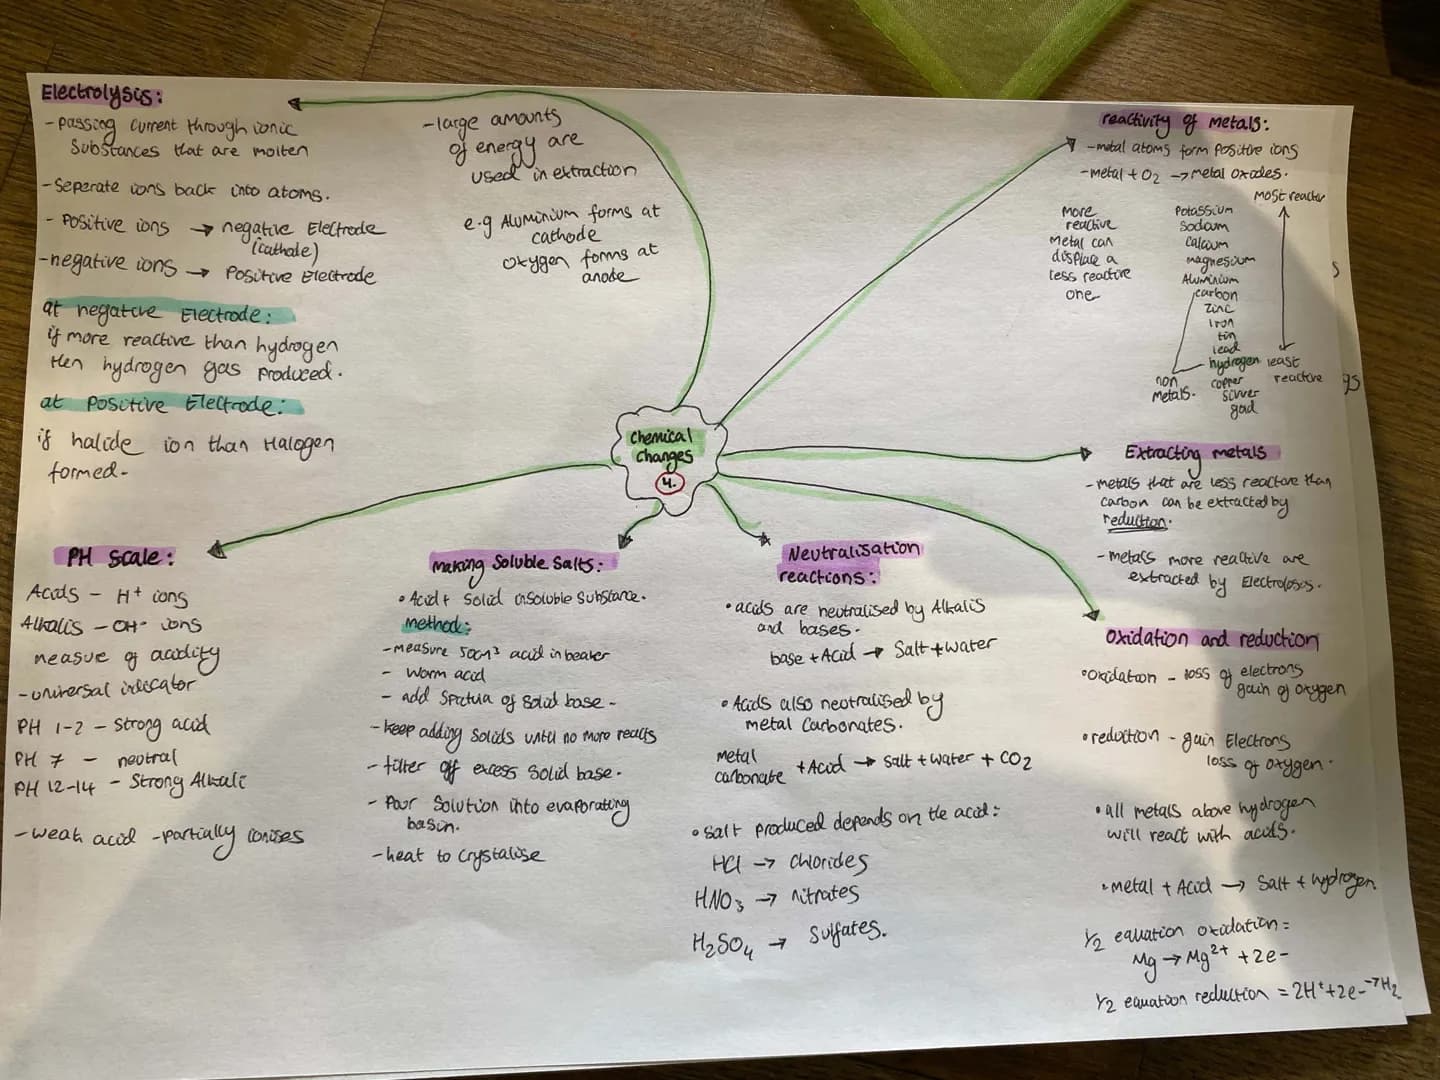 Electrolysis:
- passing current through ionic
substances that are molten
- Seperate ions back into atoms.
- Positive ions → negative Electrode
(cathode)
- negative ions → Positive Electrode
at negative Electrode:
if more reactive than hydrogen
then hydrogen gas produced.
at Positive Electrode:
if halide ion than Halogen
formed.
- large amounts
of energy are
used in extraction
e.g Aluminium forms at
cathode
oxygen forms at
anode
reactivity of metals:
- metal atoms form positive ions
- metal + O2 → metal oxides.
more
reactive
metal can
displace a
less reactive
one
most reactive
Potassium
Sodium
Calcium
magnesium
Aluminium
carbon
zinc
iron
tin
lead
hydrogen
copper
silver
gold
least
reactive
non
metals.
Chemical
changes
4.
Extracting metals
- metals that are less reactive than
carbon can be extracted by
reduction.
- metals more reactive are
extracted by
Oxidation and reduction
• oxidation - loss of electrons
gain of oxygen
• reduction - gain Electrons
loss of oxygen.
• all metals above hydrogen
will react with acids.
• metal + Acid → Salt + hydrogen.
1/2 equation oxidation =
Mg → Mg2+ + 2e-
1/2 equation reduction = 2H+ + 2e- → H2
PH Scale:
Acids - H+ ions
Alkalis - OH- ions
measue of acidity
- universal indicator
PH 1-2 - Strong acid
PH 7 - neutral
PH 12-14 - Strong Alkali
- weak acid - partially ionises
making Soluble Salts:
• Acid + Solid insoluble substance.
method:
- measure 50cm3 acid in beaker
- warm acid
- add spatula of solid base -
- keep adding solids until no more reacts
- filter off excess solid base.
- Pour Solution into evaporating
basin.
- heat to crystalise
Neutralisation
reactions:
• acids are neutralised by Alkalis
and bases.
base + Acid → Salt + water
• Acids also neutralised by
metal Carbonates.
metal
carbonate + Acid → Salt + water + CO2
• Salt produced depends on the acid:
HCl → chlorides
HNO3 → nitrates
H2SO4 → Sulfates.